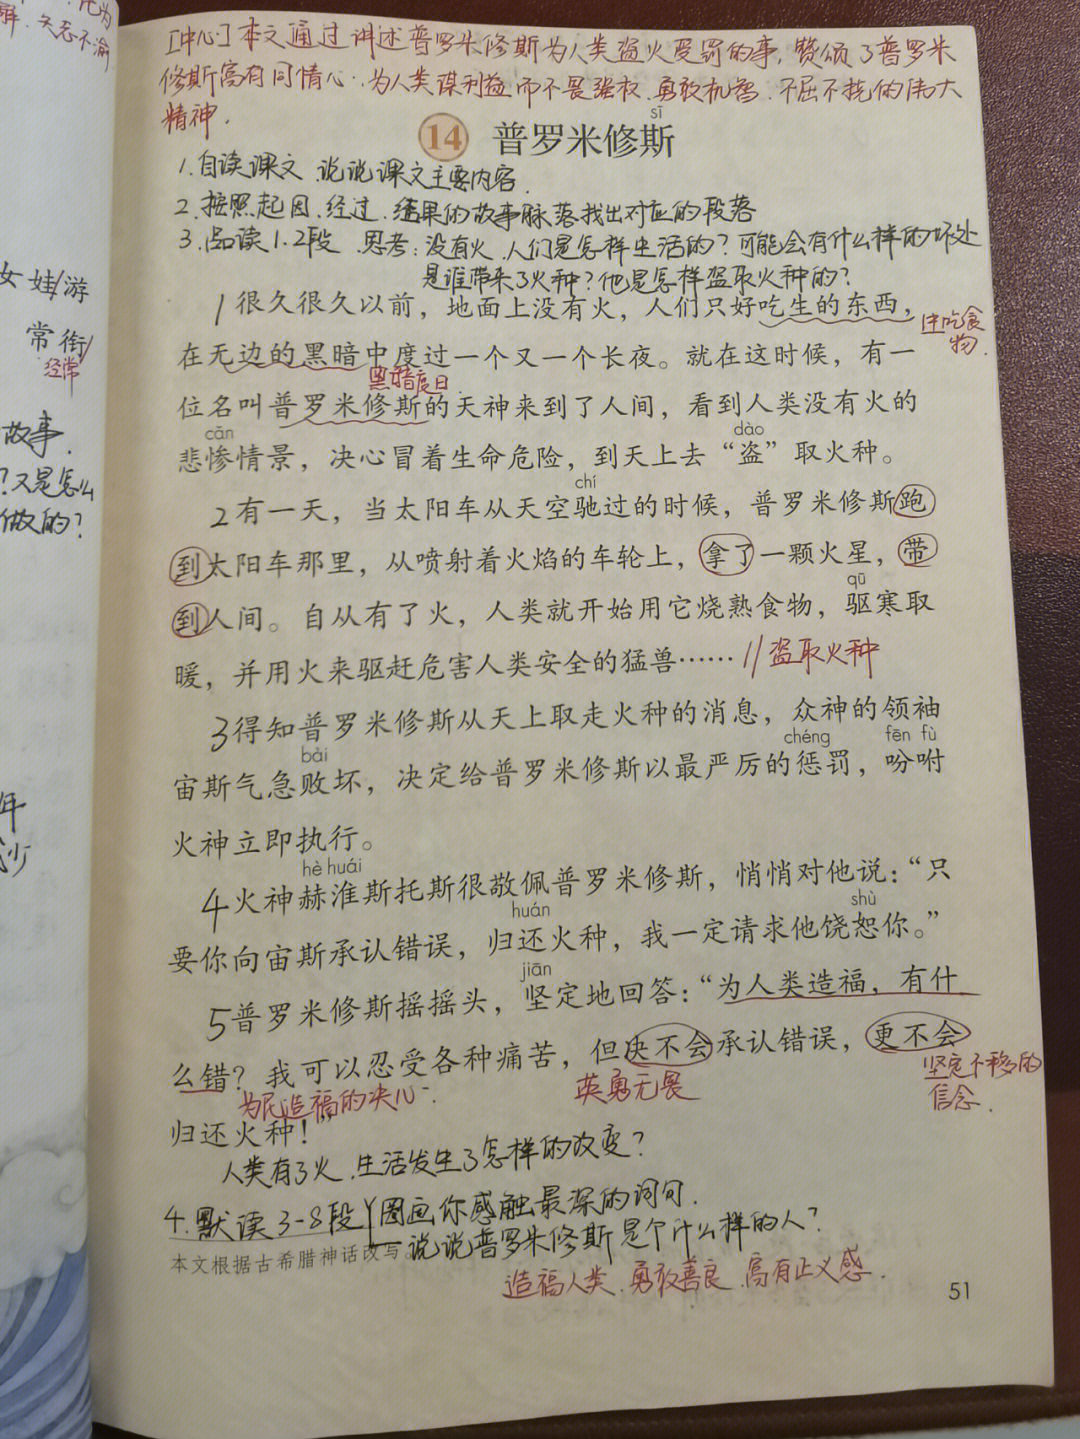 为
解.矢志不渝
女娃/游
常衔/
经常
故事.
?又是怎么
做的?
年
沙
[中心]本文通过讲述普罗米修斯为人类盗火受罚的事,赞颂了普罗米
修斯富有同情心.为人类谋利益而不畏强权.勇敢机智.不屈不挠的伟大
精神.
sī
14 普罗米修斯
1.自读课文.说说课文主要内容.
2.按照起因.经过.结果的故事脉落找出对应的段落
3.品读1.2段 思考:没有火.人们是怎样生活的?可能会有什么样的坏处
是谁带来了火种?他是怎样盗取火种的?
1很久很久以前,地面上没有火,人们只好吃生的东西,
吃食
物.
在无边的黑暗中度过一个又一个长夜。就在这时候,有一
黑暗度日.
位名叫普罗米修斯的天神来到了人间,看到人类没有火的
cǎn dào
悲惨情景,决心冒着生命危险,到天上去“盗”取火种。
chí
2有一天,当太阳车从天空驰过的时候,普罗米修斯跑
到太阳车那里,从喷射着火焰的车轮上,拿了一颗火星,带
qū
到人间。自从有了火,人类就开始用它烧熟食物,驱寒取
暖,并用火来驱赶危害人类安全的猛兽…… //盗取火种
3得知普罗米修斯从天上取走火种的消息,众神的领袖
bài chéng fēn fù
宙斯气急败坏,决定给普罗米修斯以最严厉的惩罚,吩咐
火神立即执行。
hè huái
4火神赫淮斯托斯很敬佩普罗米修斯,悄悄对他说:“只
huán shù
要你向宙斯承认错误,归还火种,我一定请求他饶恕你。”
jiān
5普罗米修斯摇摇头,坚定地回答:“为人类造福,有什
么错?我可以忍受各种痛苦,但决不会承认错误,更不会
为民造福的决心. 英勇无畏 坚定不移的
信念.
归还火种!”
人类有了火.生活发生了怎样的改变?
4.默读3-8段 圈画你感触最深的词句.
说说普罗米修斯是个什么样的人?
本文根据古希腊神话改写
造福人类.勇敢善良.富有正义感.
51